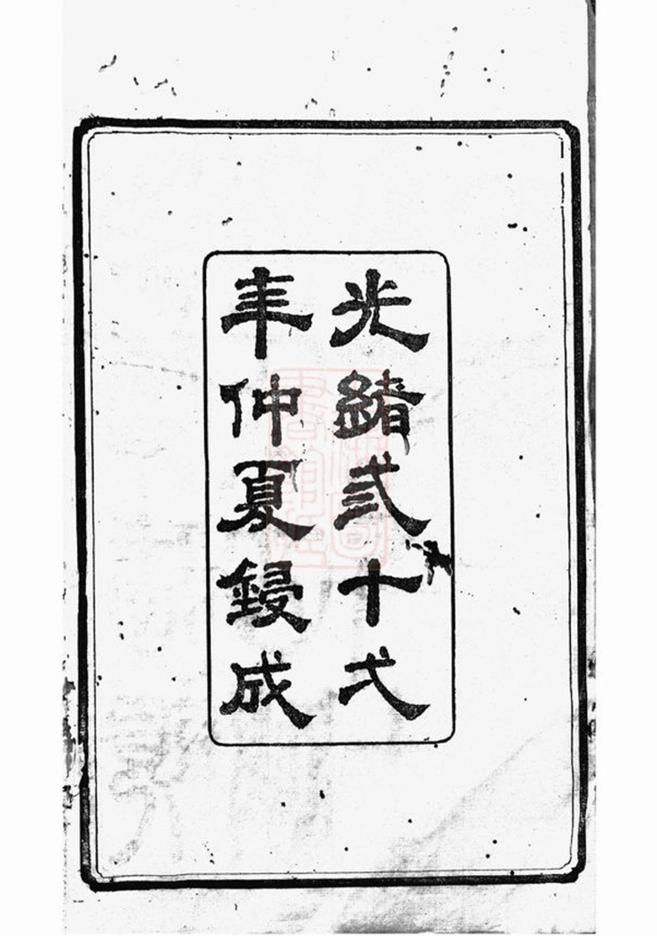 光緒弎十弌
年仲夏鋟成